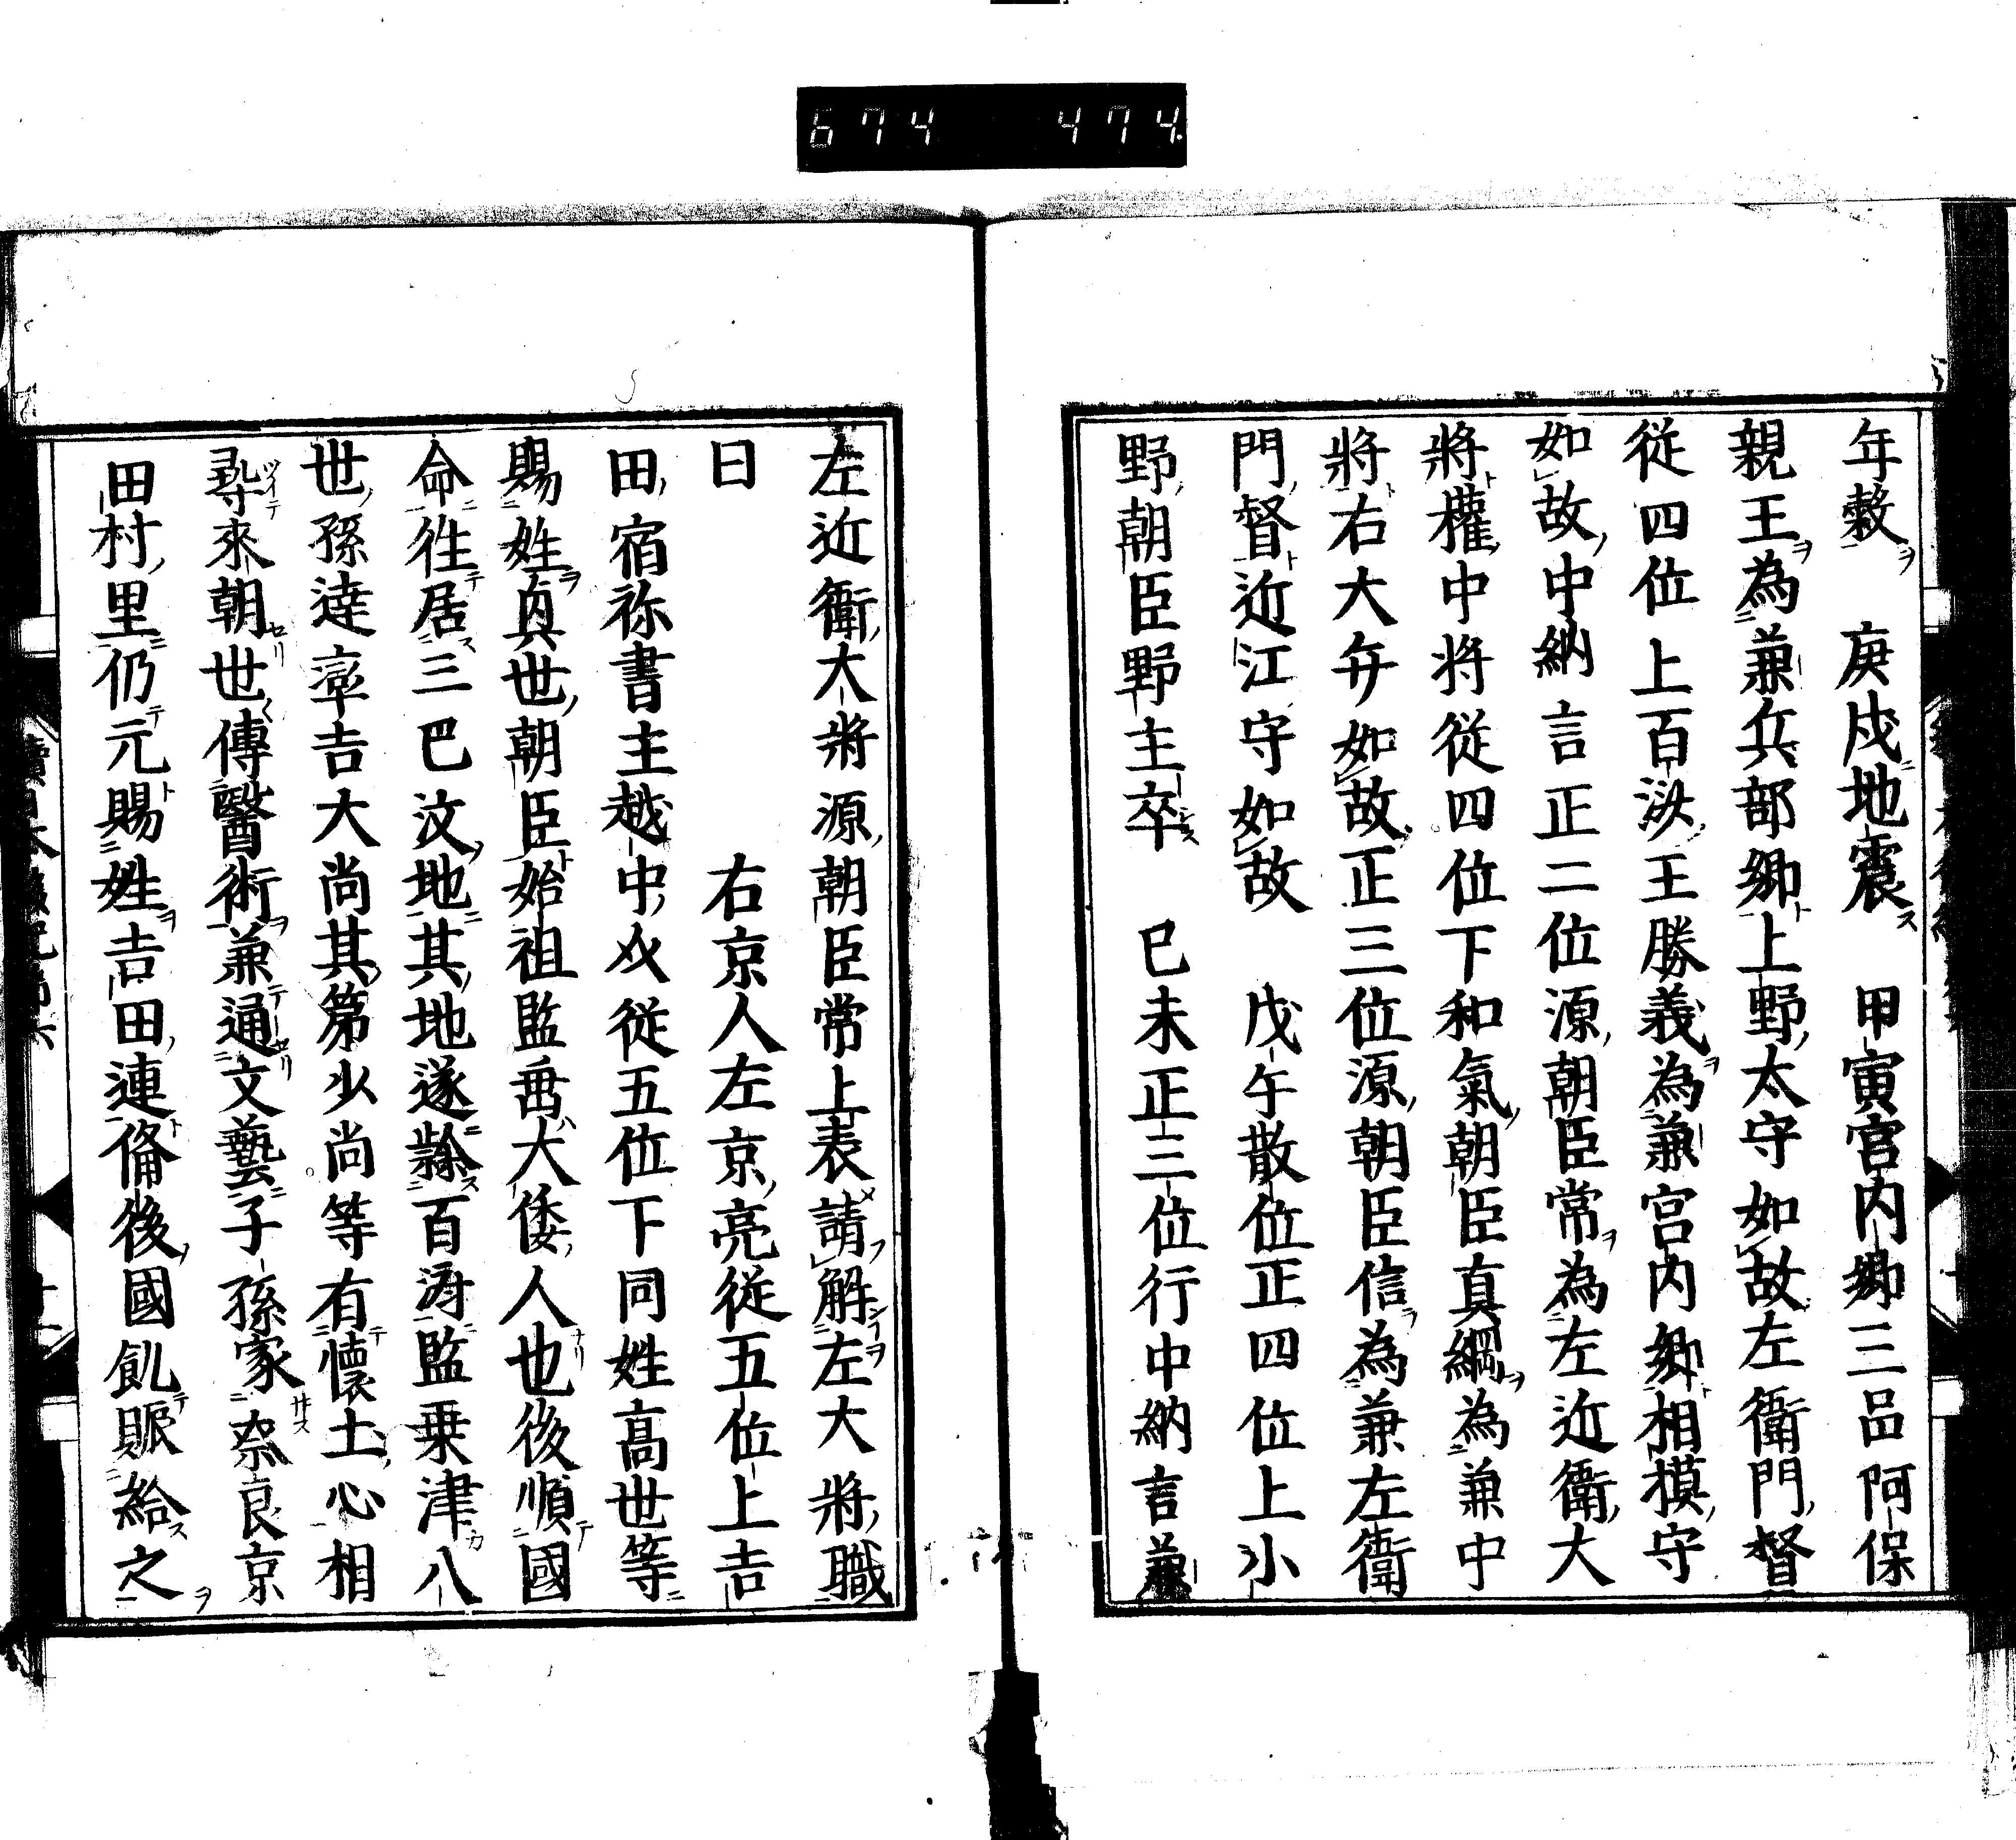 674 474
年穀 庚戌地震 甲寅宮内卿三品阿保
親王為兼兵部卿上野太守如故左衛門督
従四位上百済王勝義為兼宮内卿相摸守
如故中納言正二位源朝臣常為左近衛大
将権中将従四位下和氣朝臣真綱為兼中
将右大弁如故正三位源朝臣信為兼左衛
門督近江守如故 戊午散位正四位上小
野朝臣野主卒 已未正三位行中納言兼
左近衛大将源朝臣常上表請解左大将職
日 右京人左京亮従五位上吉
田宿祢書主越中介従五位下同姓高世等
賜姓真世朝臣始祖監毋大倭人也後順國
命徃居三巴汶地其地遂隸百済監乗津八
世孫達率吉大尚其第少尚等有懐土心相
尋來朝世々傳醫術兼通文藝子孫家奈良京
田村里仍元賜姓吉田連 備後國飢賑給之